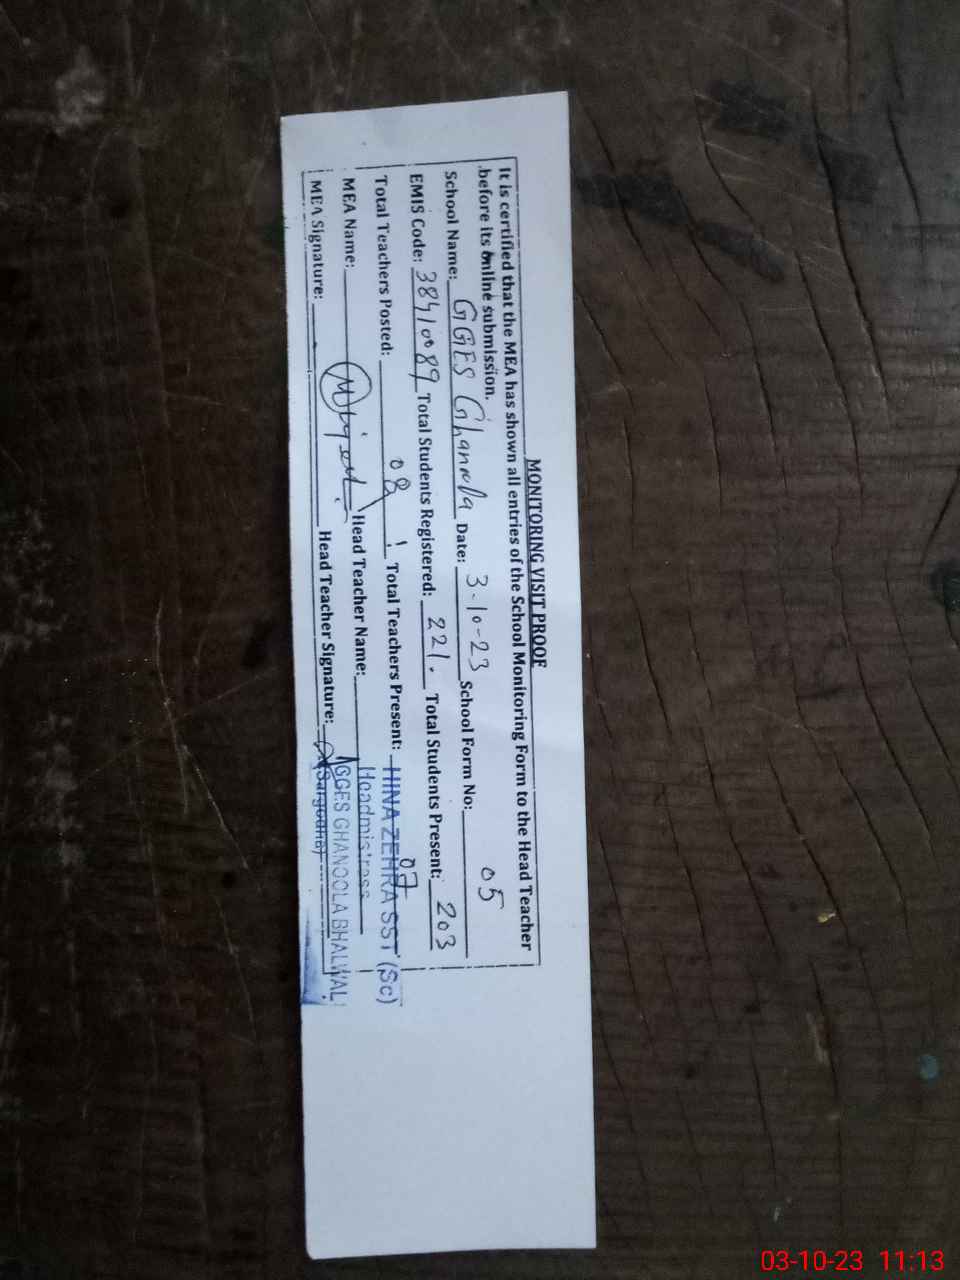 MONITORING VISIT PROOF
It is certified that the MEA has shown all entries of the School Monitoring Form to the Head Teacher
before its online submission.
School Name: GGES Ghanoola Date: 3-10-23 School Form No: 05
EMIS Code: 38410089 Total Students Registered: 221. Total Students Present: 203
Total Teachers Posted: 08 Total Teachers Present: 07
HINA ZEHRA SST (Sc)
MEA Name: Head Teacher Name:
Headmistress
GGES GHANOOLA BHALWAL
MEA Signature: Head Teacher Signature:
(Sargodha)
03-10-23 11:13